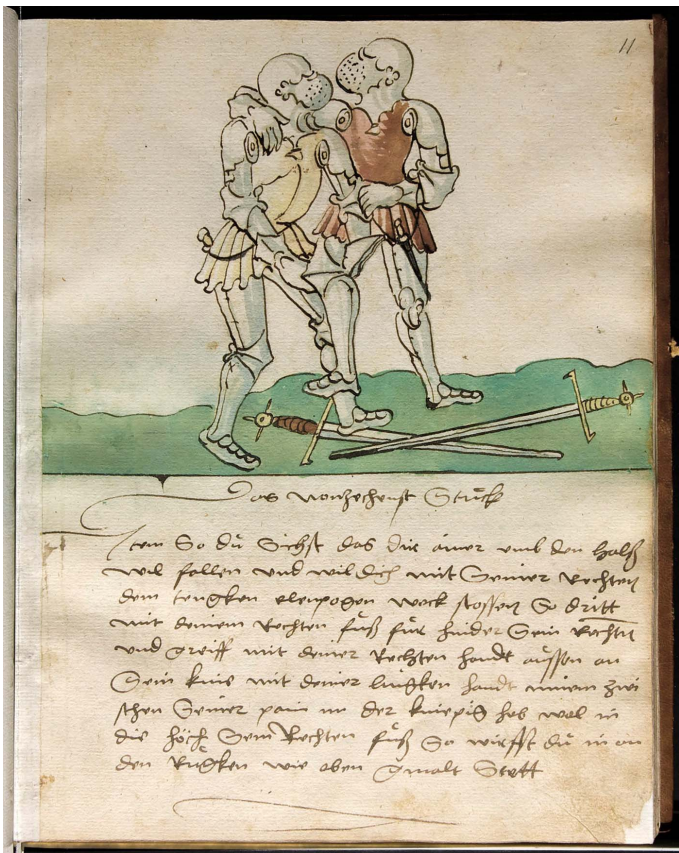 11
Das nonzechenst Stuckh
Item So du Sichst das dir ainer umb den halß
wil fallen und wil dich mit Seiner Rechten
dem tengken elenpogen weck stossen So dritt
mit deinem Rechten fuß für hinder Sein Rechten
und greiff mit deiner Rechten handt aussen an
Sein knie mit deiner lingken handt nimm zwi
schen Seiner pain in der kniepig heb wol in
die höch Sein Rechten fuß So wirffst du in an
den Rugken wie oben gmalt Stett